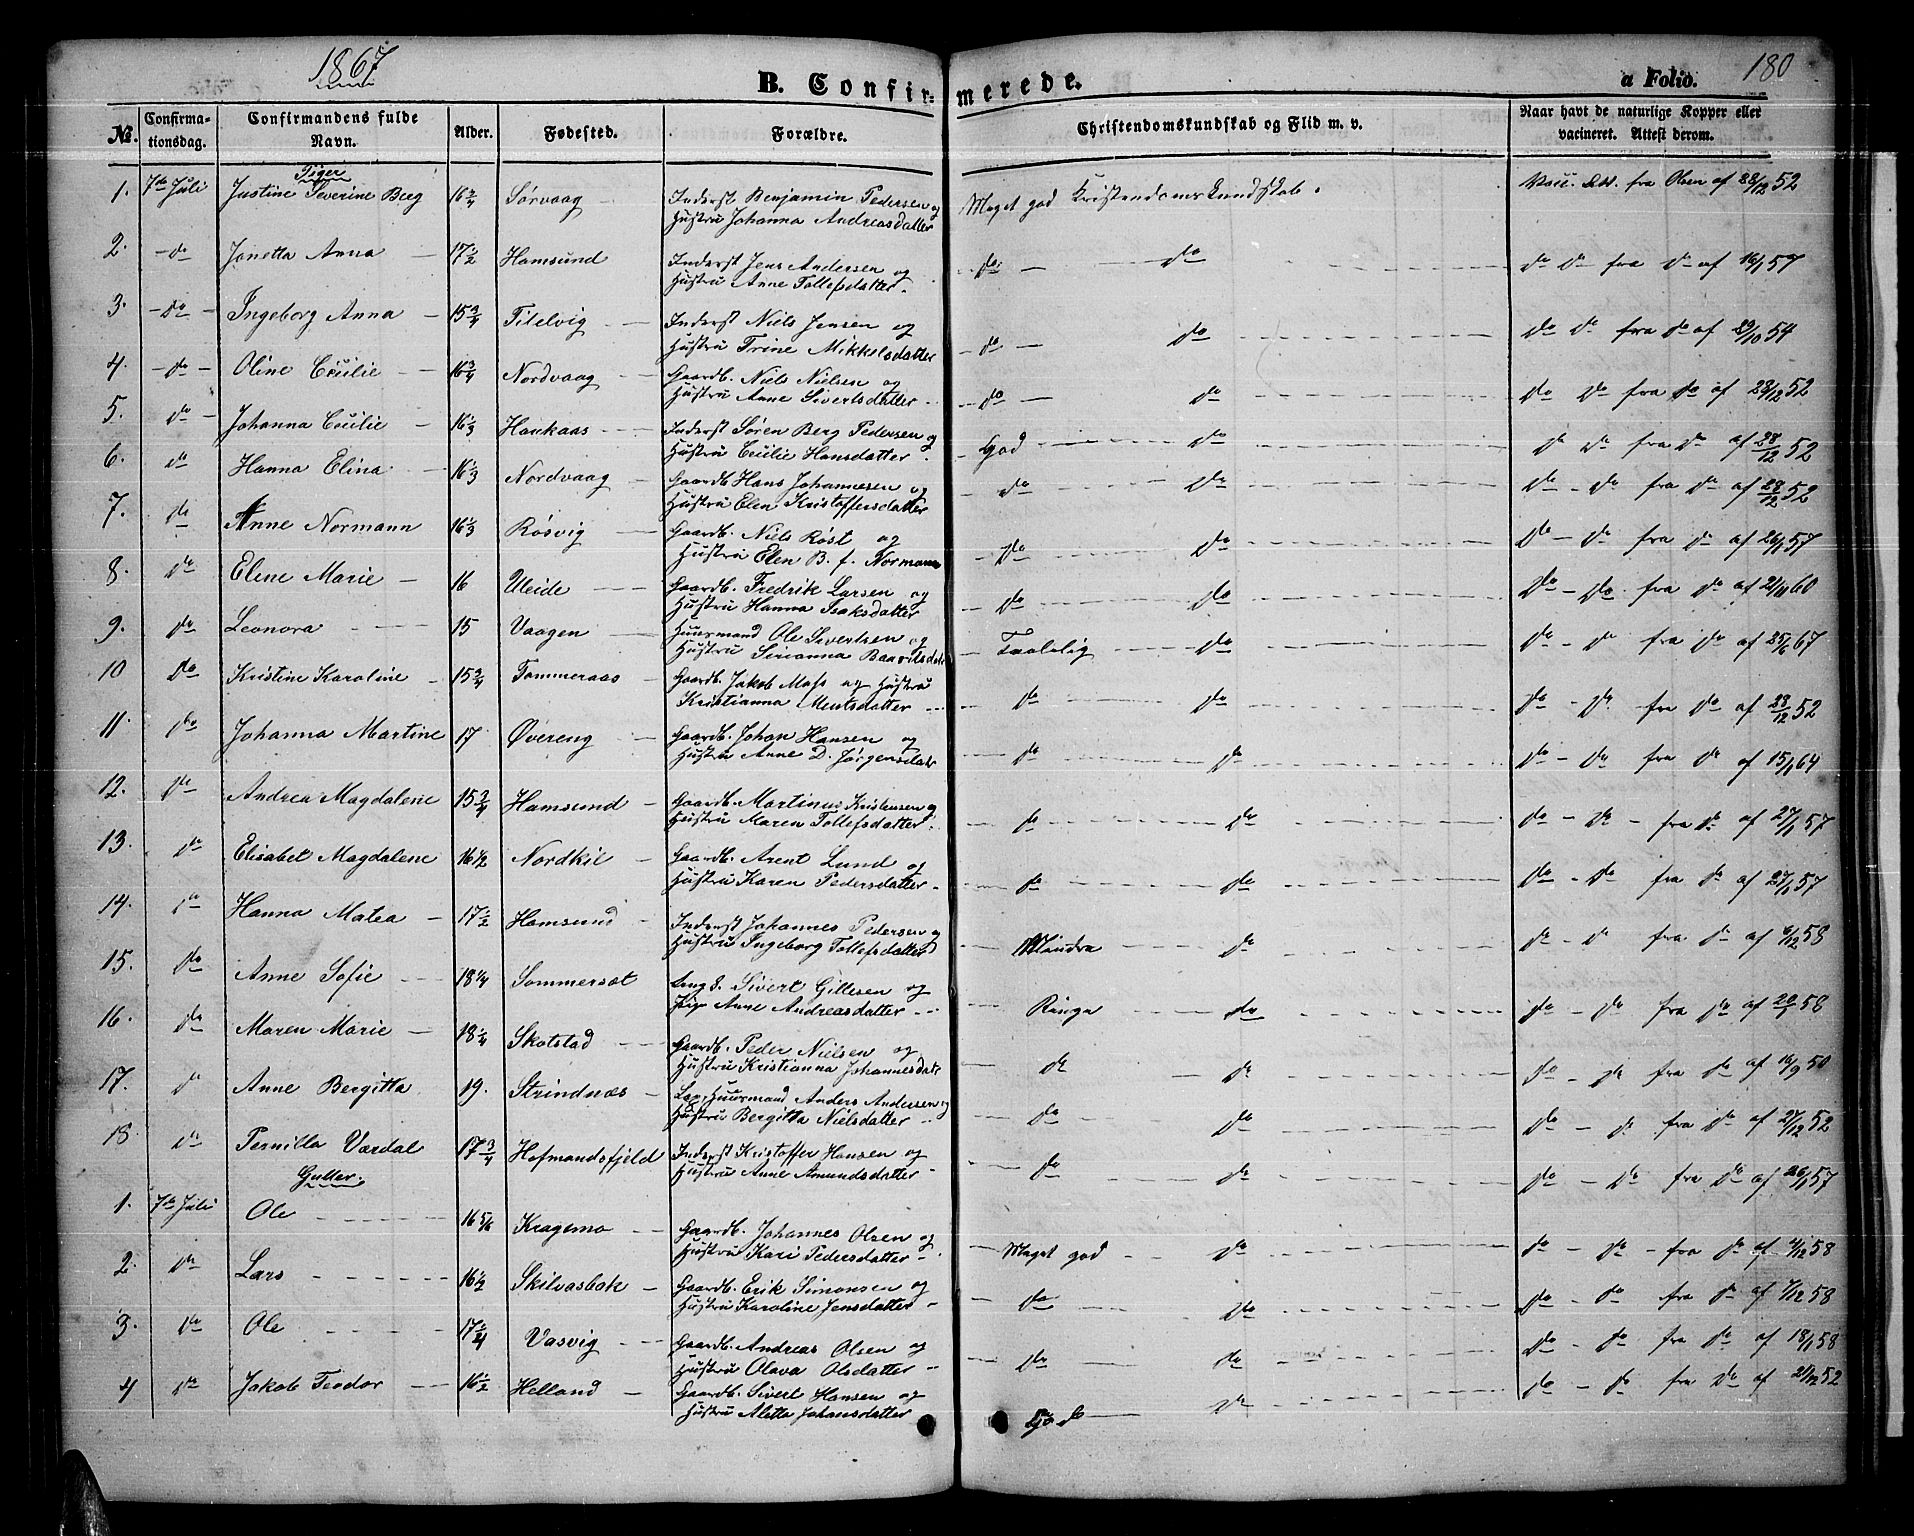 1867
180
B. Confirmerede.
a Folio.
№.
Confirmationsdag.
Confirmandens fulde Navn.
Alder.
Fødested.
Forældre.
Christendomskundskab og Flid m. v.
Naar havt de naturlige Kopper eller vacineret. Attest derom.
Piger
1. 7de Juli Justine Severine Berg 16 3/4 Sørvaag Inderst Benjamin Pedersen og Hustru Johanna Andreasdatter Meget god Kristendomskundskab. Vacc. Att. fra Olsen af 28/12 52
2. do Janetta Anna 17 1/2 Hamsund Inderst Jens Andersen og Hustru Anne Tollefsdatter do do do do fra do af 16/1 57
3. do Ingeborg Anna 15 3/4 Tilelvig Inderst Niels Jensen og Hustru Trine Mikkelsdatter do do do do fra do af 29/10 54
4. do Oline Cecilie 16 3/4 Nordvaag Gaardb. Niels Nielsen og Hustru Anne Sivertsdatter do do do do fra do af 28/12 52
5. do Johanna Cecilie 16 1/3 Haukaas Inderst Søren Berg Pedersen og Hustru Cecilie Hansdatter God do do do fra do af 28/12 52
6. do Hanna Elina 16 1/3 Nordvaag Gaardb Hans Johannesen og Hustru Elen Kristoffersdatter do do do do fra do af 28/12 52
7. do Anne Normann 16 1/3 Røsvig Gaardb. Niels Røst og Hustru Elen B. f. Normann do do do do fra do af 26/1 57
8. do Elene Marie 16 Uleide Gaardb. Fredrik Larsen og Hustru Hanna Isaksdatter do do do do fra do af 21/11 60
9. do Leonora 15 Vaagen Huusmand Ole Sivertsen og Hustru Sirianna Taalelig do do do fra do af 25/6 67
10 do Kristine Karoline 15 3/4 Tømmeraas Gaardb. Jakob Mass og Hustru Kristianna do do do do fra do af 28/12 52
11. do Johanna Martine 17 Øvereng Gaardb. Johan Hansen og Hustru Anne D. Jørgensdatr do do do do fra do af 15/1 64
12. do Andrea Magdalene 15 3/4 Hamsund Gaardb. Martinus Kristensen og Hustru Maren Tollefsdatter do do do do fra do af 27/1 57
13. do Elisabet Magdalene 16 1/2 Nordkil Gaardb. Arent Lund og Hustru Karen Pedersdatter do do do do fra do af 27/1 57
14. do Hanna Matea 17 1/2 Hamsund Inderst Johannes Pedersen og Hustru Ingeborg Tollefsdatter Mindre do do do fra do af 6/12 58
15. do Anne Sofie 18 1/4 Sommersæt Ung. S. Sivert Gillesen og Pige Anne Andreasdatter Ringe do do do fra do af 58
16. do Maren Marie 18 1/4 Skotstad Gaardb. Peder Nielsen og Hustru Kristianna Johannesdatr do do do do fra do af 16/9 50
17. do Anne Bergitta 19. Strindnæs Lap. Huusmand Anders Andersen og Hustru Bergitta Nielsdatter do do do do fra do af 27/12 52
18 do Pernilla Værdal 17 3/4 Hofmandsfjeld Inderst Kristoffer Hansen og Hustru Anne Amundsdatter do do do do fra do af 26/1 57
Gutter.
1. 7de Juli Ole 16 5/6 Kragemo Gaardb. Johannes Olsen og Hustru Kari Pedersdatter Meget god do do do fra do af 4/12 58
2. do Lars 16 1/2 Skilvasbak Gaardb. Erik Simonsen og Hustru Karoline Jensdatter do do do do fra do af 7/12 58
3. do Ole 17 1/4 Vasvig Gaardb. Andreas Olsen og Hustru Olava Olsdatter do do do do fra do af 18/1 58
4 do Jakob Teodor 16 1/2 Helland Gaardb. Sivert Hansen og Hustru Aletta Johansdatter God do do do fra do af 21/12 52